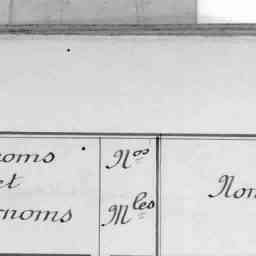 noms
et
rnoms
Nos
Mles
Nom